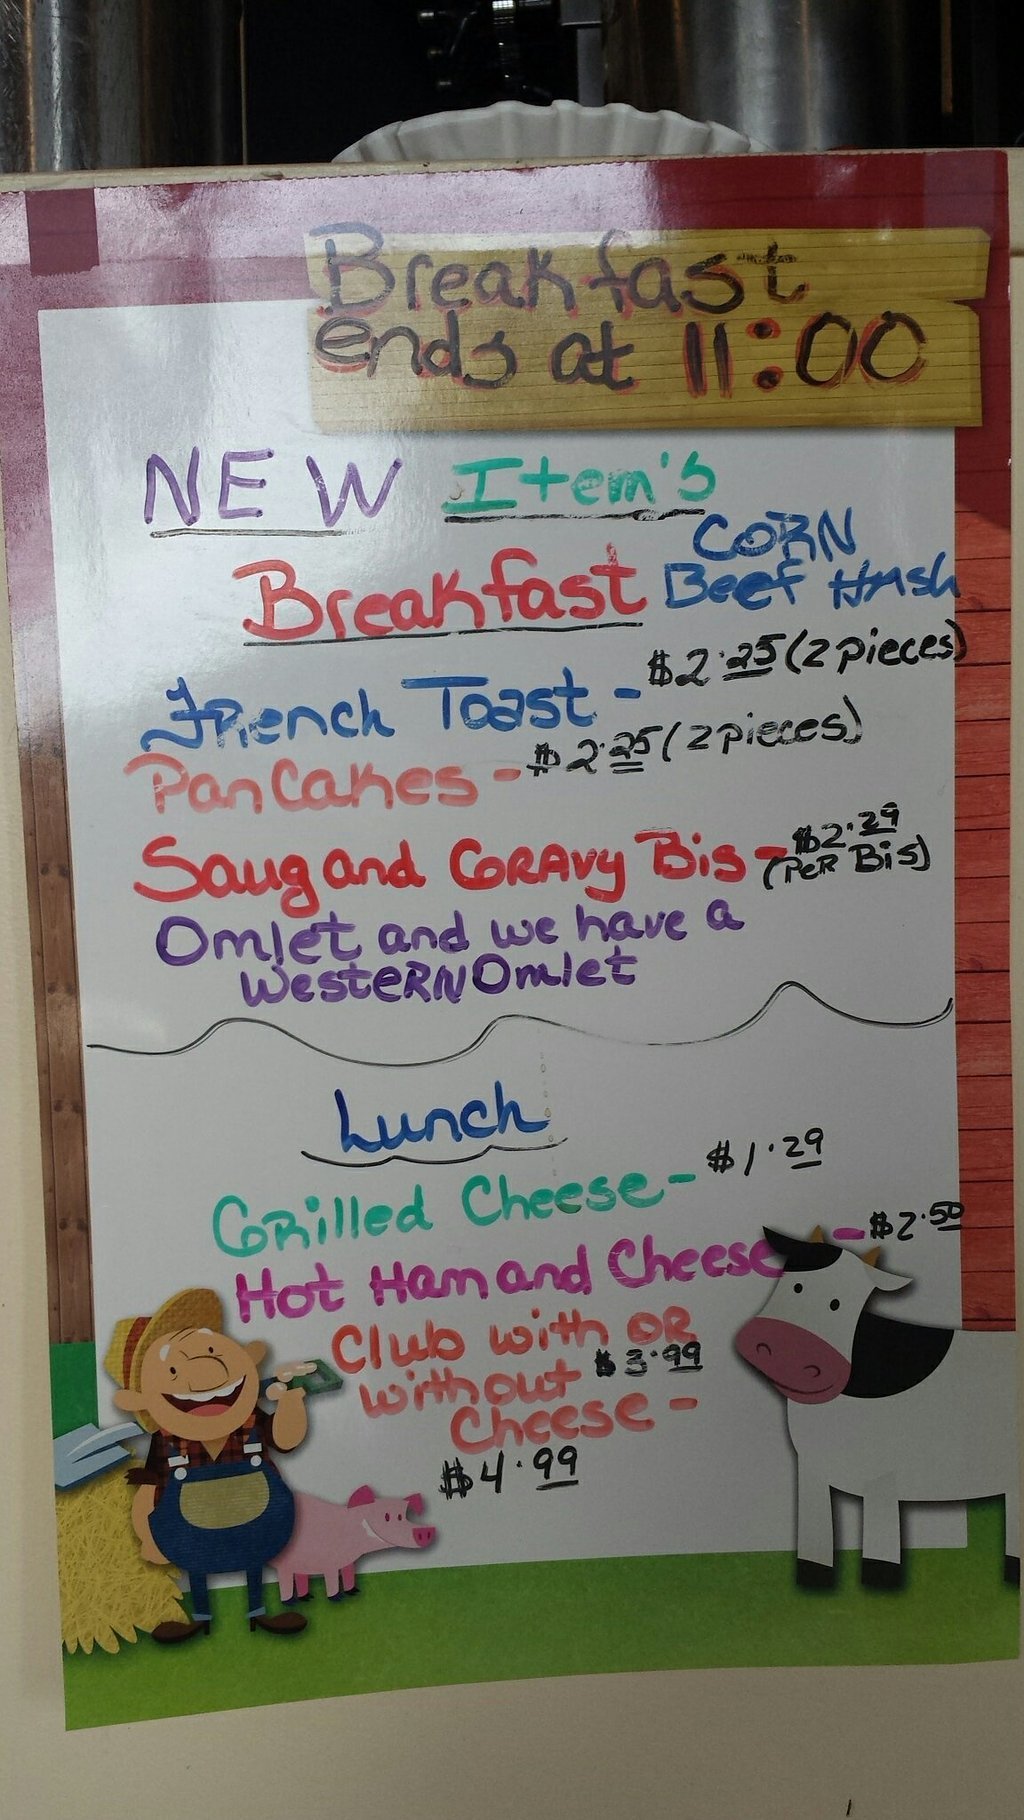 Breakfast
ends at 11:00
NEW Item's
Breakfast
CORN
Beef Hash
French Toast - $2.25 (2 pieces)
Pancakes - $2.25 (2 pieces)
Saug and GRAvy Bis - $2.29
(PeR Bis)
Omlet and we have a
WesteRN Omlet
Lunch
GRilled Cheese - $1.29
Hot Ham and Cheese - $2.50
Club with OR
without $3.99
Cheese -
$4.99